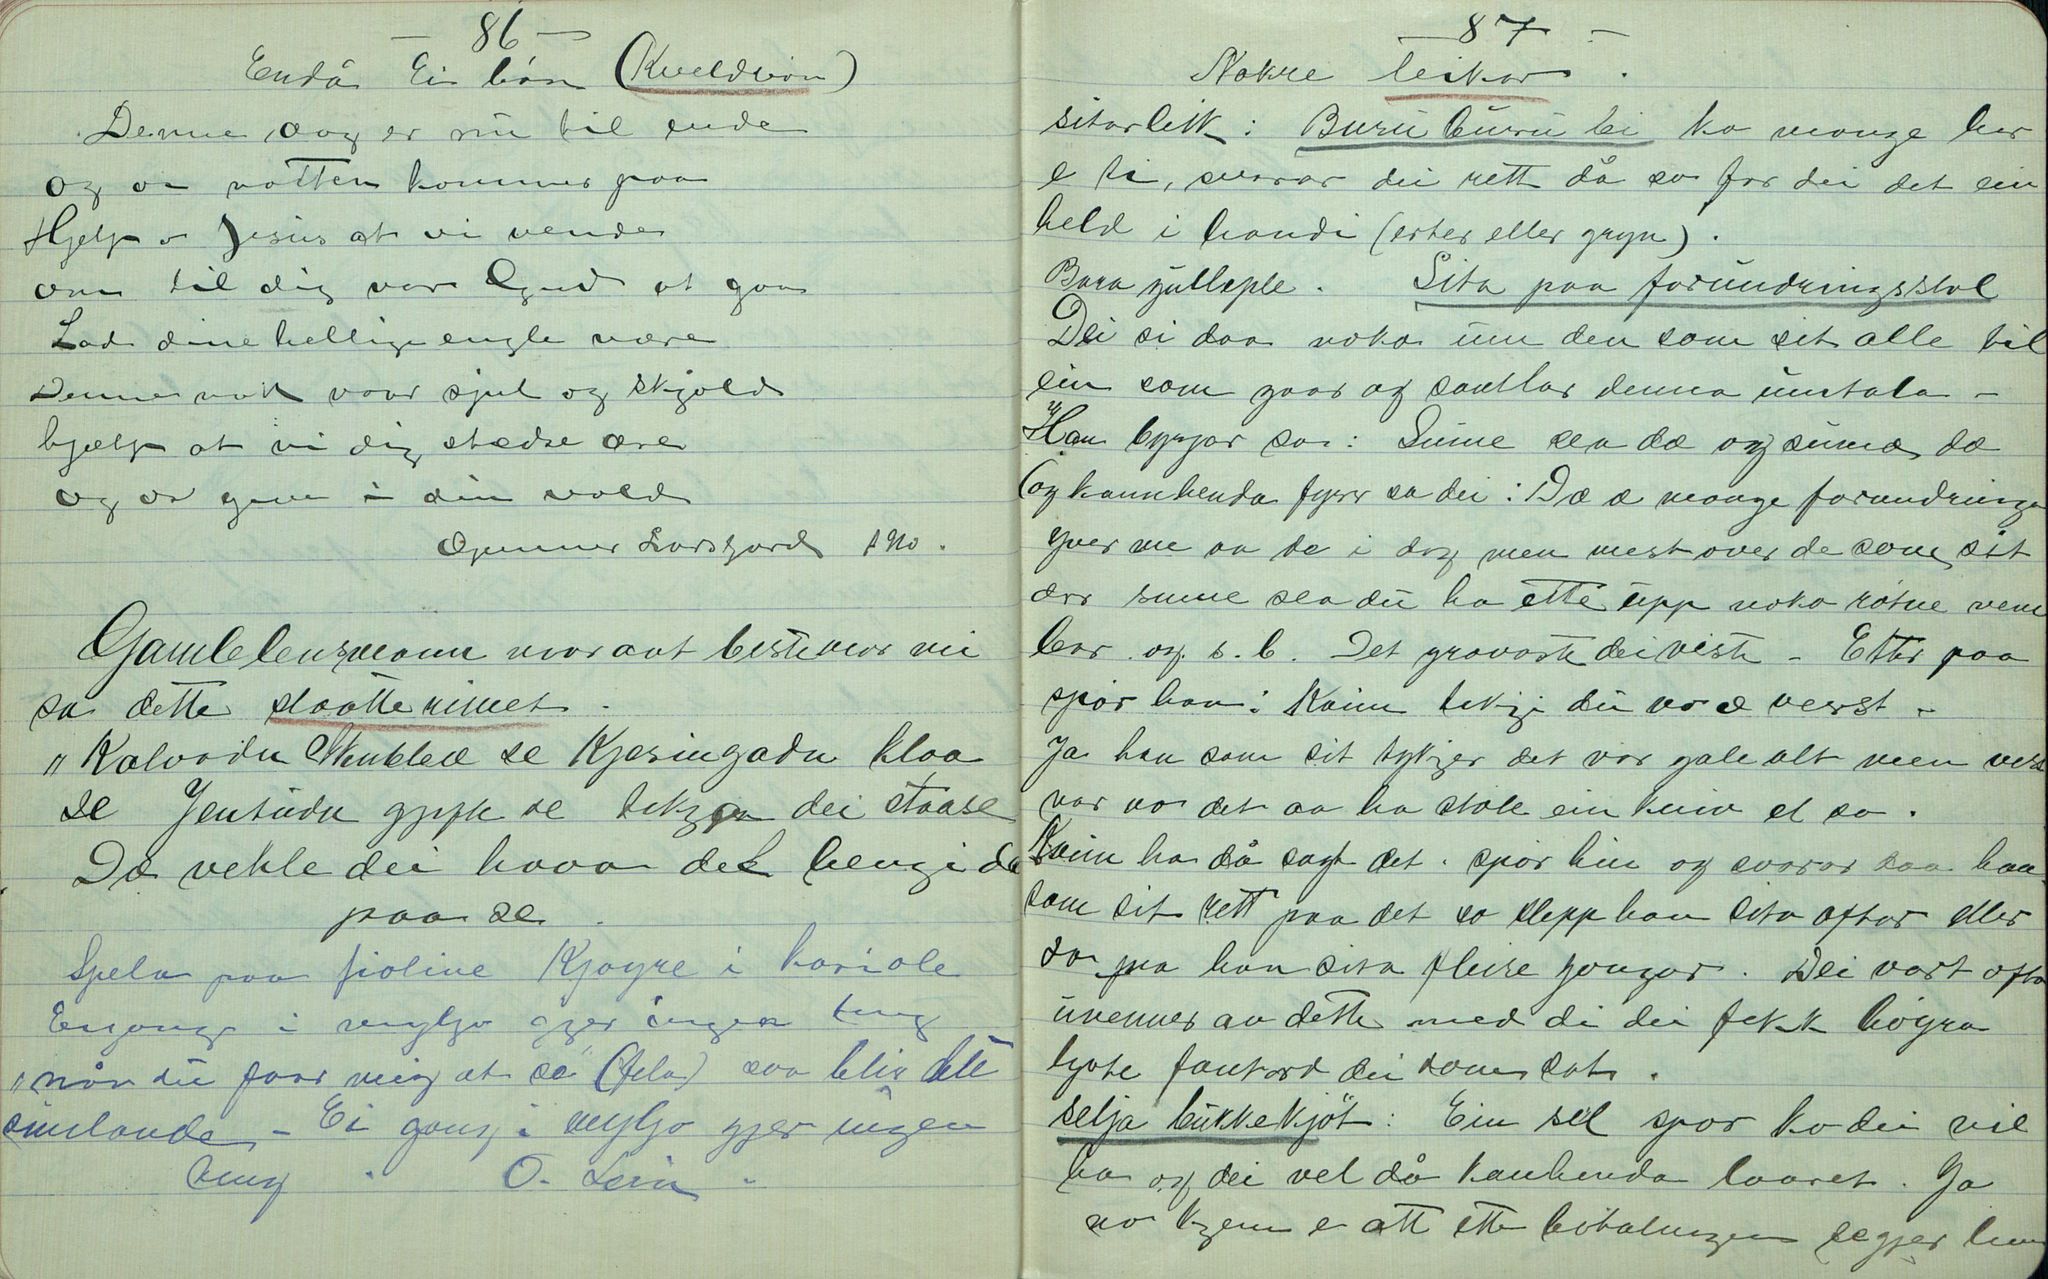 - 86 -
Endå Ei bön (Kveldbön)
Denne dag er nu til ende
og  natten kommer paa
Hjelp o Jesus at vi vende
om til dig vor Gud at gaa
Lad dine hellige engle være
Denne nat vaar sjul og skjold
hjælp at vi dig stædse ære
og os give i din vold
Gunner Larsgard

Gamlelensmann  bestemor mi
sa dette slaatterimet.
"Kalvadn  se Kjeringadn klaa
se Jentudn  se  dei staase
Dæ vetle dei hava det heng i de
paa se.
Spela paa fioline Kjøyre i kariole
Eigong i mylja gjer ingen ting
"når du faar mig at se (fela) saa blir det
 - Ei gong i mylja gjer ingen
ting. O. Lein.
- 87 -
Nokre leikar.
sitarleik: Buru buru bei ko mange her
e ti, svarar dei rett då so får dei det ein
held i handi (erter eller gryn).
Bara gulleple. Sita paa forundringsstol
Dei si daa noko um den som sit alle til
ein som gaar og samlar denna umtala -
Han byrjar so: Sume sea dæ og sume dæ
(og kannhenda fyrr sa dei: Dæ æ mange forundringa
yver me aa de i dag men mest over de som sit
der sume sea du ha ette upp noko rotne
 og s. b. Det gravaste dei viste - Etter paa
spör han: Kaim tekje du va æ verst -
Ja han som sit tykjer det var gale alt men vers
var no det aa ha stole ein kniv el so.
Kaim ha då sagt det. spör hin og svarar saa han
som sit rett paa det so slepp han sita oftar eller
so maa han sita fleire gonger. Dei vart ofta
uvenner av dette med di dei fekk höyra
ljote fantord dei som sat.
selja bukkekjöt: Ein sel spör ko dei vil
ha og dei vel då kanhenda laaret. Ja
no kjem e att ette bötalingen segjer hin